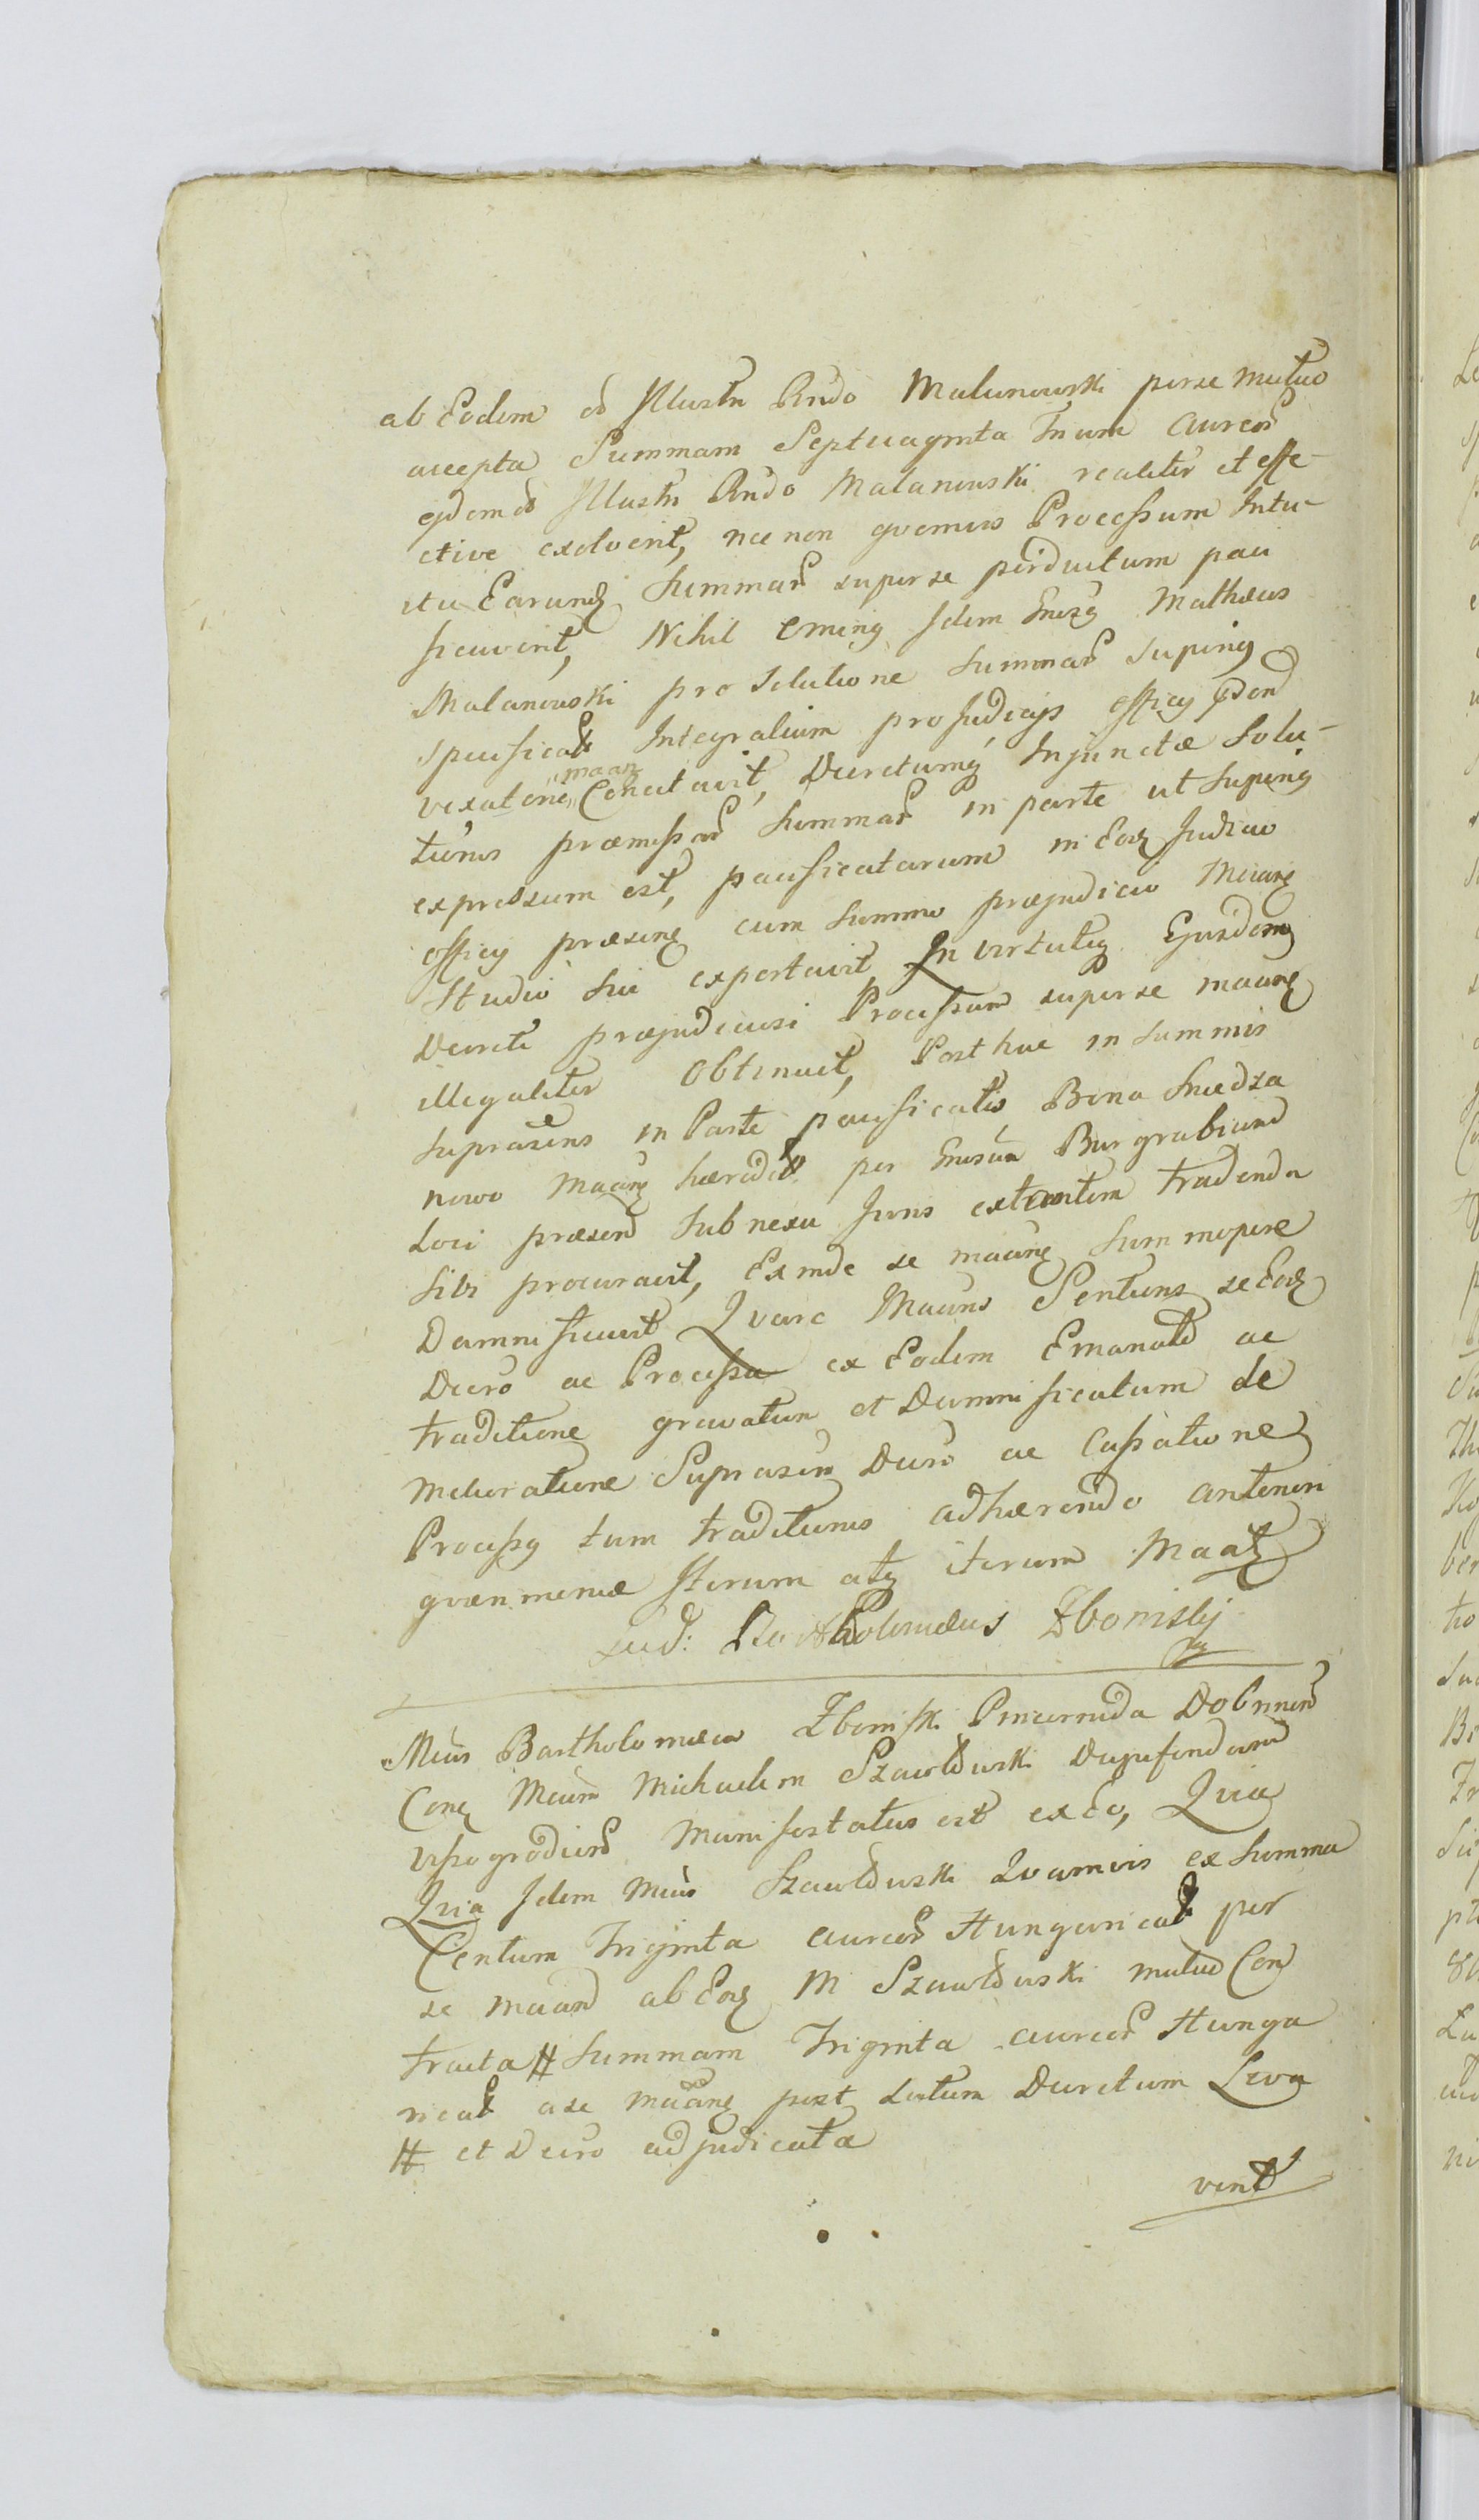 ab Eodem  Illustri Rndo Malanowski per se mutuo
accepta Summam Septuaginta Trium Aureor
ejdem Illustri Rndo Malanowski realiter et effe-
ctive exolverit, nec non quamvis Processum Intu-
itu Earundq Summar super se perductum paci
ficaverit, Nihil Idem Gnrsq Mathæus
Malanowski pro solutione Summar Superiq
specificat Integralium pro Judicijs officij
vexatione „maan„ Concitavit, Decretumq Injunctæ Solu-
tionis præmissar Summar in parte ut Superiq
expressum est, pacificatarum in Eodq Judicio
officij præsenq cum Summo præjudicio Mciang
Studio sui exportavit, In virtuteq Ejusdemq
Decreti præjudiciosi Processum super se maang
illegaliter Obtinuit, Post hac in Summis
Suprasens in Parte pacificatis, Bona Sniedza
nowo Maang hæredit per Gnrsum Burgrabium
Loci præsen Sub nexu Juris extantem tradenda
Sibi procuravit, Exinde se maang Summopere
Damnificavit Qvare Maans Sentiens se Eodq
Decro ac Processu ex Eodem Emanato ac
traditione gravatum et Damnificatum de
melioratione Suprasenq Decro ac Cassatione
Processq tum traditionis adhærendo anteriori
qværimoniæ Iterum atq iterum Maatq
 Bartholomæus Zboinskj
Mcus Bartholomæus Zboinski Pincernida Dobrinen
Conq Mcum Michaelem Szawłowski Dapiferidam
Vissogrodien Manifestatus est ex Eo, Qvia
Qvia Idem Mcus Szawłowski Qvamvis ex Summa
Centum Triginta aureor Hungarical per
se maan ab Eodq M Szawłowski mutuo Con
tracta # Summam Triginta aureor Hunga
rical a se maang post Latum Decretum Leva
# et Decro adjudicata
verit